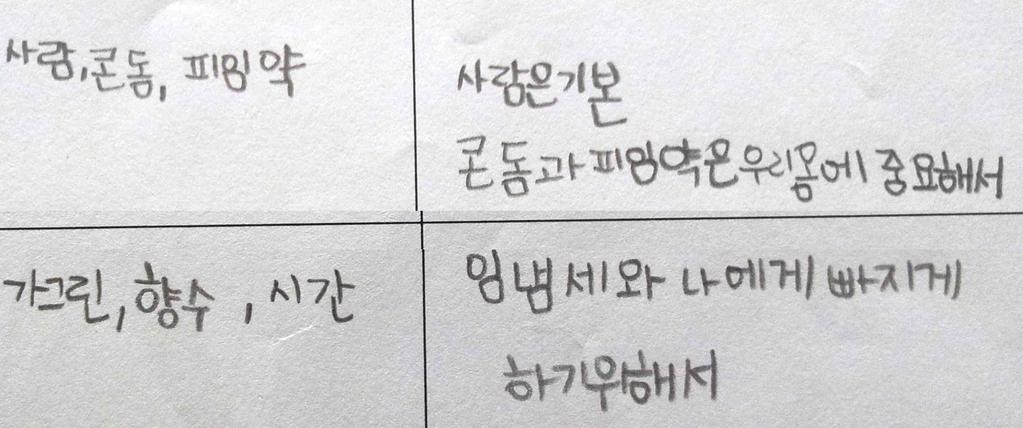 사람,콘돔, 피임약
사람은기본
콘돔과 피임약은우리몸에 중요해서
가그린,향수, 시간
입냄세와 나에게 빠지게
하기위해서